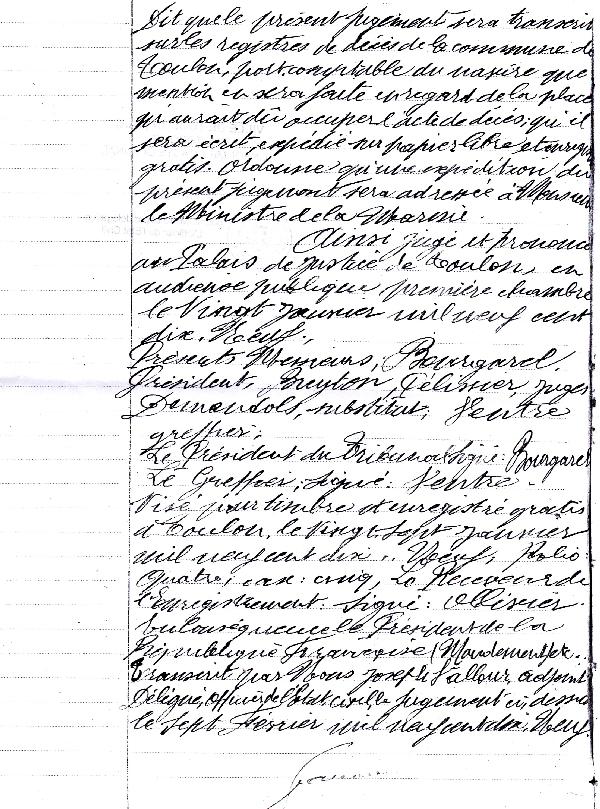 Dit que le présent jugement sera transcrit
sur les registres de décès de la commune de
Toulon, port comptable du navire que
mention en sera faite en regard de la place
qu'aurait dû occuper l'acte de décès; qu'il
sera écrit, expédié sur papier libre et enregistré
gratis. Ordonne qu'une expédition du
présent jugement sera adressée à Monsieur
le Ministre de la Marine.
Ainsi jugé et prononcé
au Palais de justice de Toulon, en
audience publique première chambre
le Vingt Janvier mil neuf cent
dix. Neuf,
Présents Messieurs, Bourgarel.
Président, Pélissier, juges
Demandols, substitut, Ventre
greffier;
Le Président du Tribunal Signé: Bourgarel
Le Greffier; signé: Ventre.
Visé pour timbre et enregistré gratis
à Toulon, le Vingt. Sept Janvier
mil neuf cent dix.. Neuf, Folio:
quatre, case: cinq, Le Receveur de
l'Enregistrement. Signé: Ollivier.
En conséquence le Président de la
République Française (Mandement, etc..
Transcrit par Nous Joseph adjoint
Délégué, Officier de l'Etat civil, le jugement ci, dessus
le Sept Février mil neuf cent dix, Neuf.